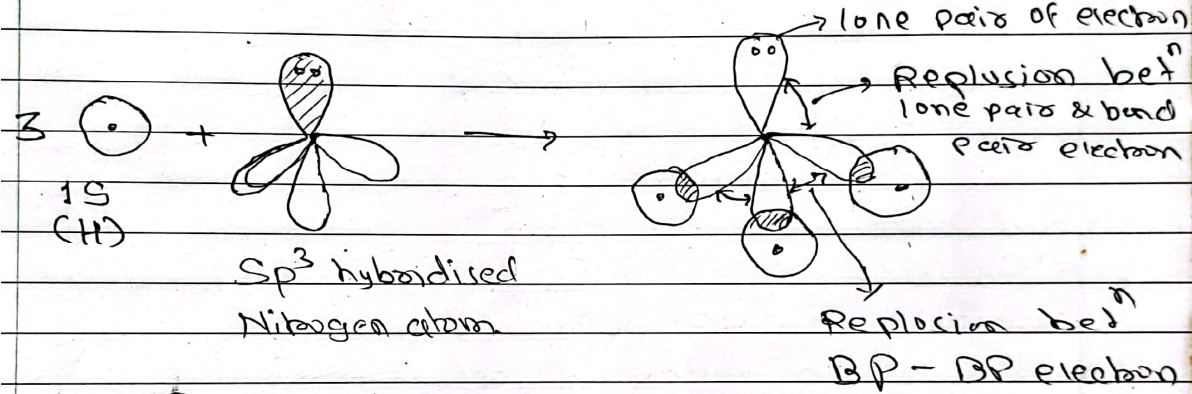 → lone pair of electron
→ Replusion betⁿ
lone pair & bond
pair electron
3 + →
1S
(H)
Sp³ hybridised
Nitrogen atom
Replocion betⁿ
BP - BP electron